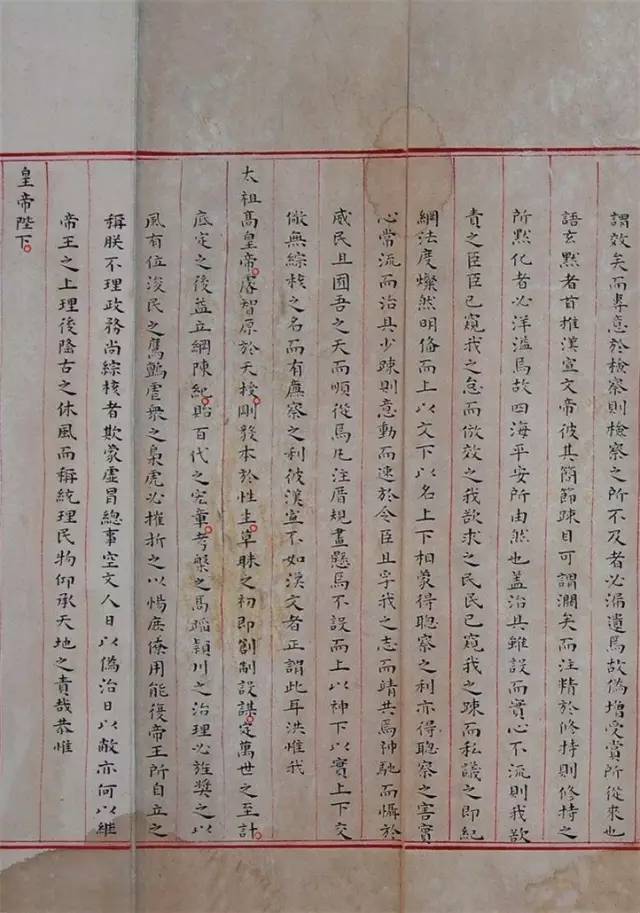 謂效矣而專意於檢察則檢察之所不及者必漏遺焉故偽增受賞所從來也
語玄默者首推漢宣文帝彼其簡節疎目可謂濶矣而注精於修持則修持之
所默化者必洋溢焉故四海平安所由然也蓋治具雖設而實心不流則我欲
責之臣臣已窺我之怠而倣效之我欲求之民民已窺我之疎而私議之即紀
綱法度燦然明備而上以文下以名上下相蒙得聰察之利亦得聰察之害實
心常流而治具少疎則意動而速於令臣且孚我之志而靖共焉神馳而懾於
威民且囿吾之天而順從焉凡注厝規畫懸焉不設而上以神下以實上下交
儆無綜核之名而有廉察之利彼漢宣不如漢文者正謂此耳洪惟我
太祖高皇帝睿智原於天授剛毅本於性生草昧之初即創制設謀定萬世之至計
底定之後益立綱陳紀貽百代之憲章考槃之馬蹈潁川之治理必旌獎之以
風有位浚民之鷹鸇虐衆之梟虎必摧折之以惕庶僚用能復帝王所自立之
稱朕不理政務尚綜核者欺蒙虛冒總事空文人日以偽治日以敝亦何以繼
帝王之上理後隆古之休風而稱統理民物仰承天地之責哉恭惟
皇帝陛下